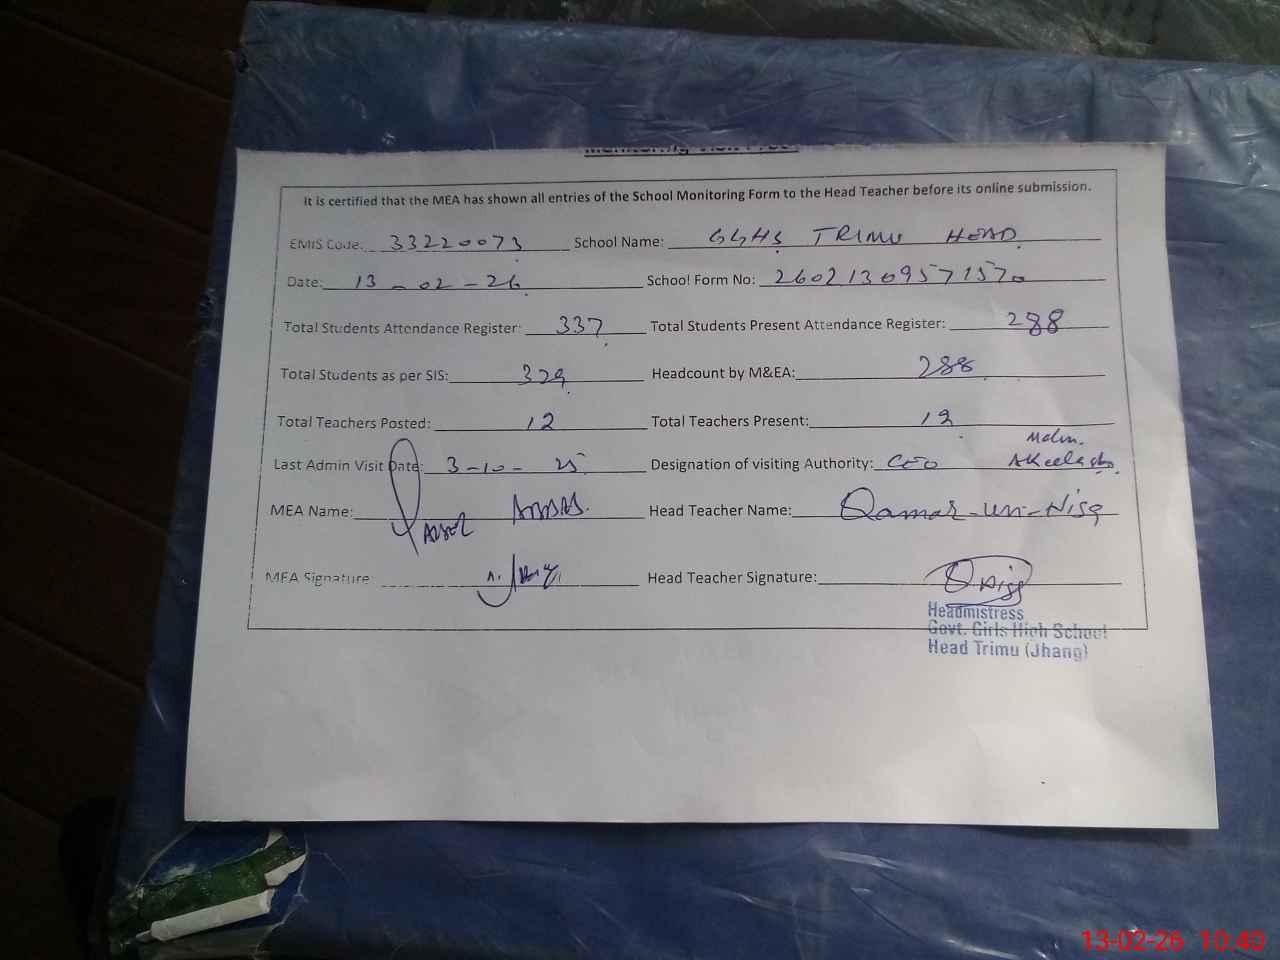 It is certified that the MEA has shown all entries of the School Monitoring Form to the Head Teacher before its online submission.
EMIS Code: 33220073 School Name: GGHS TRIMU HEAD
Date: 13-02-26 School Form No: 26021309571570
Total Students Attendance Register: 337 Total Students Present Attendance Register: 288
Total Students as per SIS: 329 Headcount by M&EA: 288
Total Teachers Posted: 12 Total Teachers Present: 12
Last Admin Visit Date: 3-10-25 Designation of visiting Authority: CEO
MEA Name: Head Teacher Name: Qamar-un-Nisa
MEA Signature Head Teacher Signature:
Headmistress
Govt. Girls High School
Head Trimu (Jhang)
13-02-26 10:40